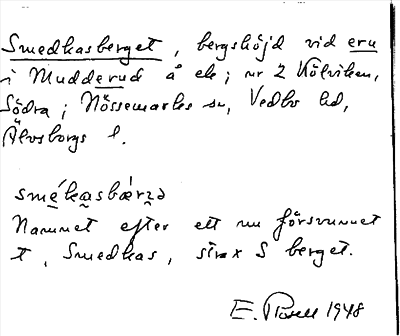 Smedkasberget, bergshöjd vid eru
i Mudderud å ek; nr 2 Kölviken,
Södra; Nössemarks sn, Vedbo hd,
Älvsborgs l.
smékasbærʒə
Namnet efter ett nu försvunnet
t, Smedkas, strax S berget.
E. 1948